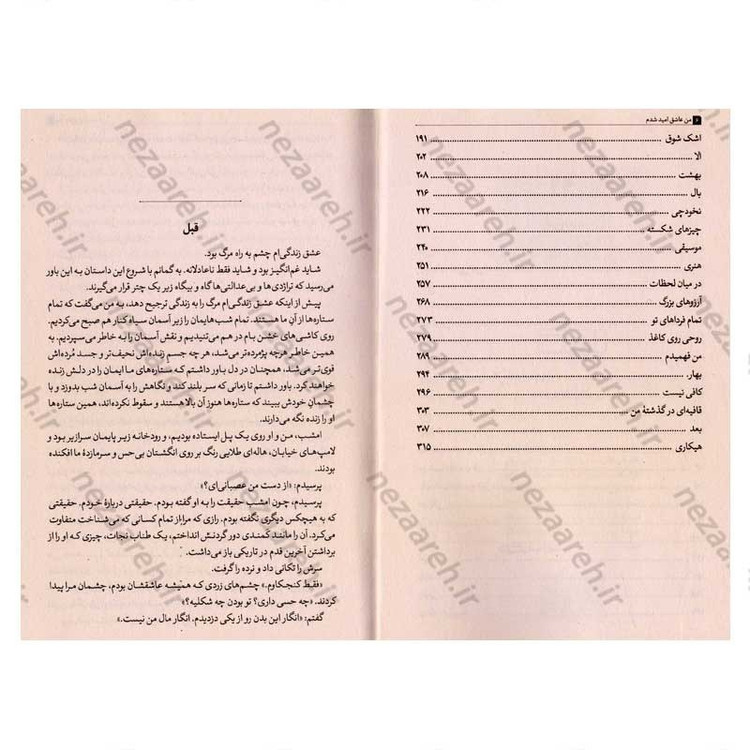 ۶ من عاشق امید شدم
اشک شوق ۱۹۱
الا ۲۰۲
بهشت ۲۰۸
بال ۲۱۶
نخودچی ۲۲۲
چیزهای شکسته ۲۳۱
موسیقی ۲۴۰
هنری ۲۵۱
در میان لحظات ۲۵۷
آرزوهای بزرگ ۲۶۸
تمام فرداهای تو ۲۷۳
روحی روی کاغذ ۲۷۹
من فهمیدم ۲۸۹
بهار ۲۹۴
کافی نیست ۲۹۶
قافیه‌ای در گذشتهٔ من ۳۰۳
بعد ۳۰۷
هیکاری ۳۱۵
قبل
عشق زندگی‌ام چشم به راه مرگ بود.
شاید غم‌انگیز بود و شاید فقط ناعادلانه. به گمانم با شروع این داستان به این باور
می‌رسید که تراژدی‌ها و بی‌عدالتی‌ها گاه و بیگاه زیر یک چتر قرار می‌گیرند.
پیش از اینکه عشق زندگی‌ام مرگ را به زندگی ترجیح دهد، به من می‌گفت که تمام
ستاره‌ها از آنِ ما هستند. تمام شب‌هایمان را زیر آسمان سیاه کنار هم صبح می‌کردیم.
روی کاشی‌های خشن بام در هم می‌تنیدیم و نقش آسمان را به خاطر می‌سپردیم. به
همین خاطر هرچه پژمرده‌تر می‌شد، هر چه جسمِ زنده‌اش نحیف‌تر و جسد مُرده‌اش
قوی‌تر می‌شد، همچنان در دل باور داشتم که ستاره‌های ما ایمان را در دلش زنده
خواهند کرد. باور داشتم تا زمانی که سر بلند کند و نگاهش را به آسمان شب بدوزد و با
چشمانِ خودش ببیند که ستاره‌ها هنوز آن بالا هستند و سقوط نکرده‌اند، همین ستاره‌ها
او را زنده نگه می‌دارند.
امشب، من و او روی یک پل ایستاده بودیم، و رودخانه زیر پایمان سرازیر بود و
لامپ‌های خیابان، هاله‌ای طلایی رنگ بر روی انگشتان بی‌حس و سرمازدهٔ ما افکنده
بودند.
پرسیدم: «از دست من عصبانی‌ای؟»
پرسیدم، چون امشب حقیقت را به او گفته بودم. حقیقتی دربارهٔ خودم. حقیقتی
که به هیچکس دیگری نگفته بودم. رازی که مرا از تمام کسانی که می‌شناخت متفاوت
می‌کرد. آن را مانند کمندی دور گردنش انداختم، یک طناب نجات، چیزی که او را از
برداشتن آخرین قدم در تاریکی باز می‌داشت.
سرش را تکانی داد و نرده را گرفت.
«فقط کنجکاوم.» چشم‌های زردی که همیشه عاشقشان بودم، چشمان مرا پیدا
کردند. «چه حسی داری؟ تو بودن چه شکلیه؟»
گفتم: «انگار این بدن رو از یکی دزدیدم. انگار مال من نیست.»
nezaareh.ir